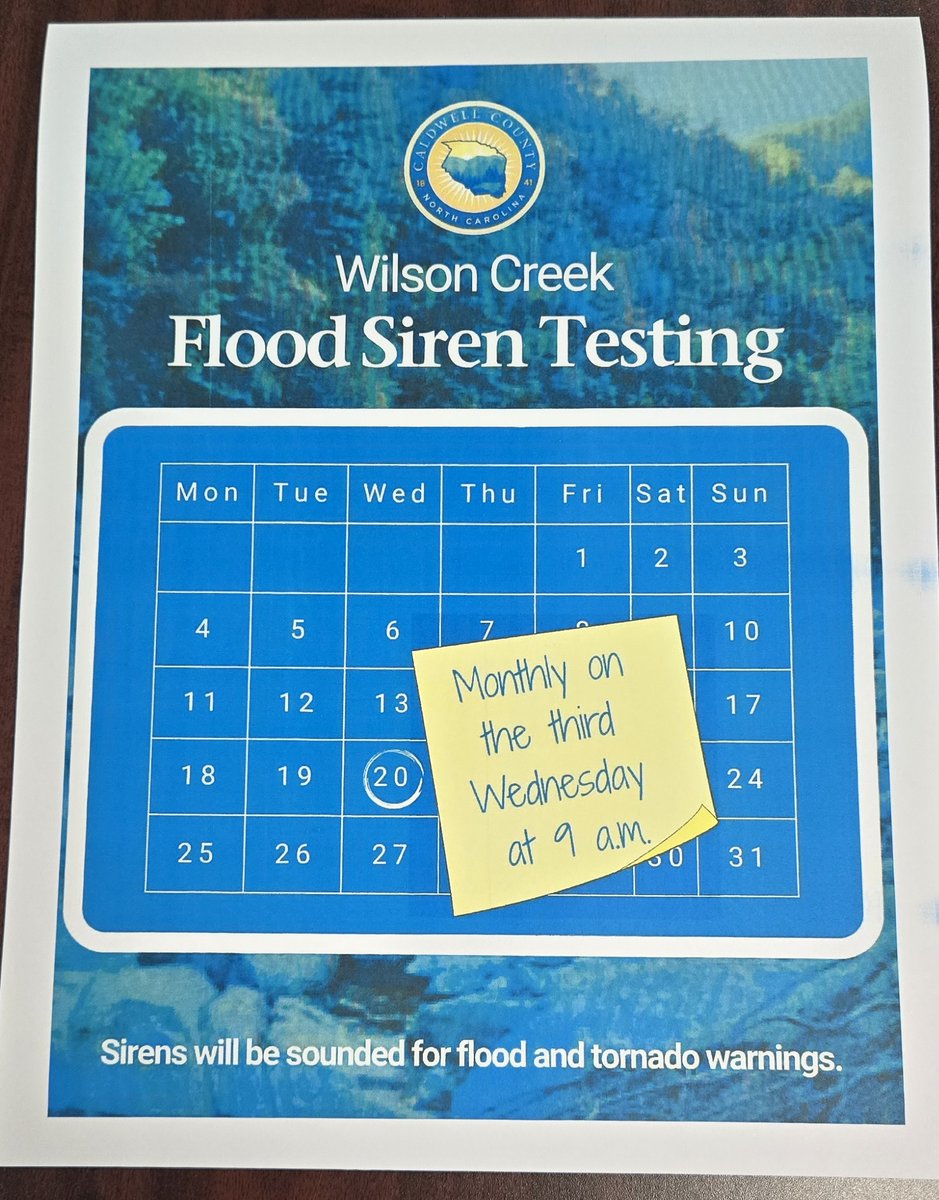 CALDWELL COUNTY
18 41
NORTH CAROLINA
Wilson Creek
Flood Siren Testing
Mon Tue Wed Thu Fri Sat Sun
1 2 3
4 5 6 7 10
11 12 13 17
18 19 20 24
25 26 27 30 31
Monthly on
the third
Wednesday
at 9 a.m.
Sirens will be sounded for flood and tornado warnings.